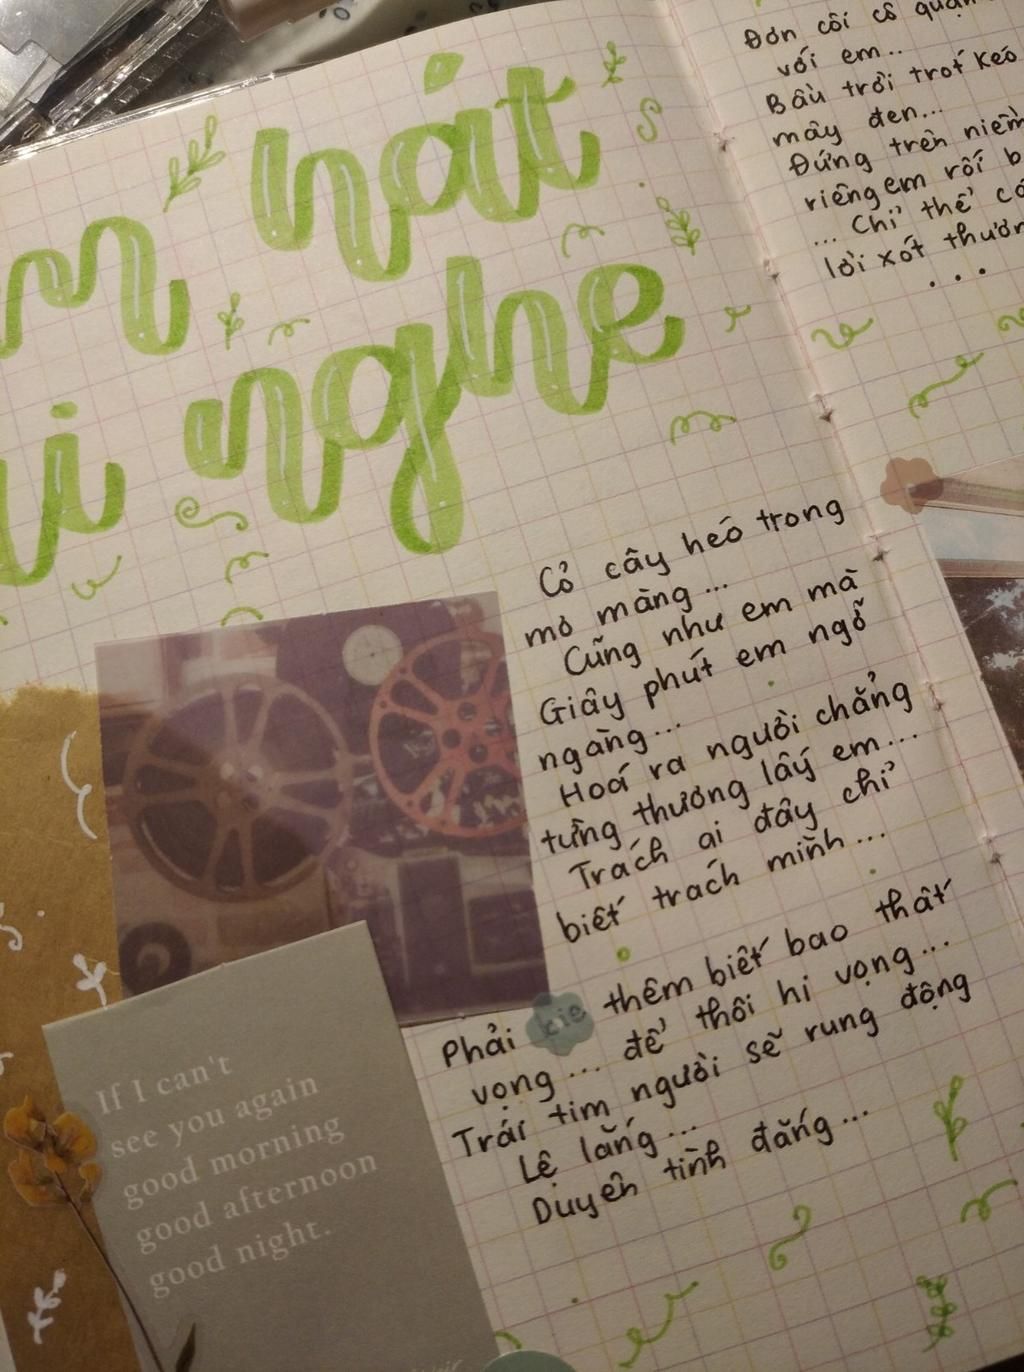 hát
nghe
Cỏ cây héo trong
mơ màng...
Cũng như em mà
Giây phút em ngỡ
ngàng...
Hoá ra người chẳng
từng thương lấy em...
Trách ai đây chỉ
biết trách mình...
Phải thêm biết bao thất
vọng... để thôi hi vọng...
Trái tim người sẽ rung động
Lệ lắng...
Duyên tình đắng...
If I can't
see you again
good morning
good afternoon
good night.
Đơn côi cô quạn
với em..
Bầu trời trót kéo
mây đen...
Đứng trên niềm
riêng em rối b
... Chỉ thể có
lời xót thươn
...